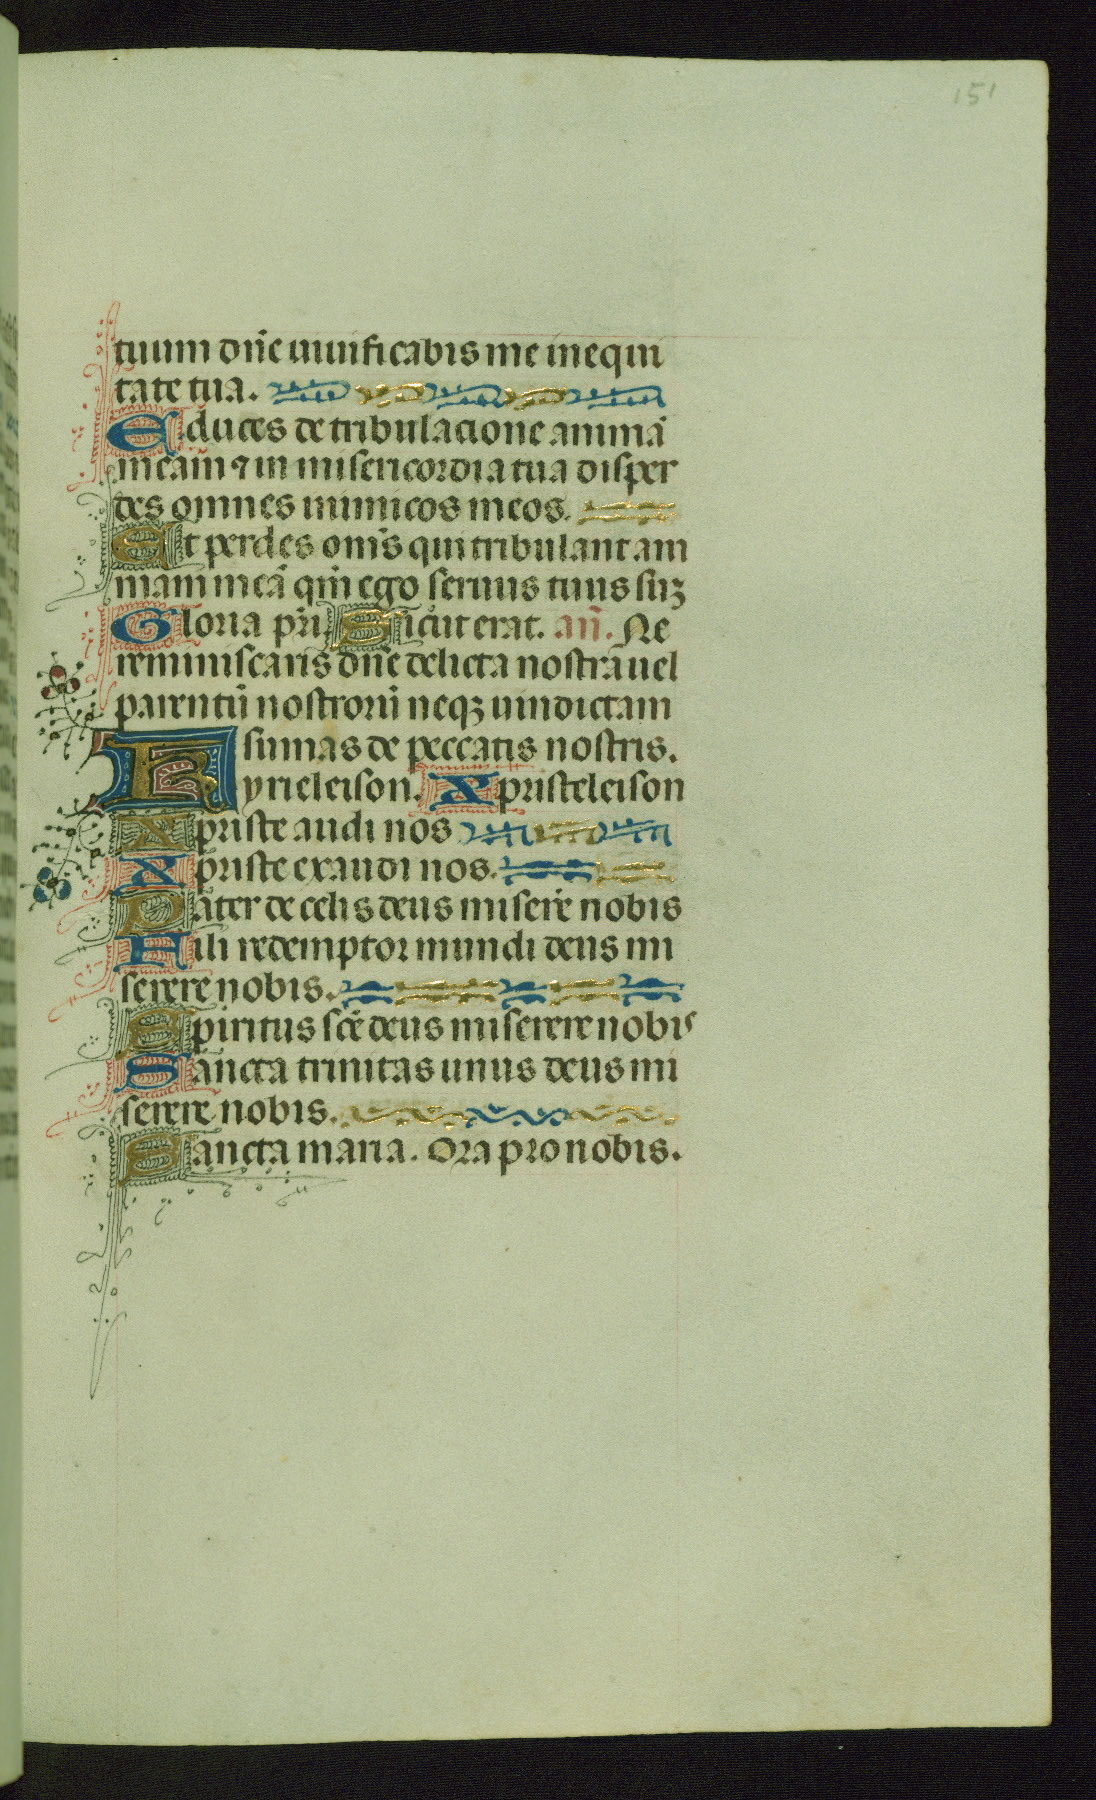 151
tuum dn̄e uiuificabis me in equi
tate tua.
Educes de tribulacione animā
meam ⁊ in misericordia tua disper
des omnes inimicos meos.
Et perdes om̄s qui tribulant ani
mam meā qm̄ ego seruus tuus suꝫ
Gloria pr̄i Sicut erat. an̄. Ne
reminiscaris dn̄e delicta nostra uel
parentū nostrorū neqꝫ uindictam
sumas de peccatis nostris.
Kyrieleison. Xpristeleison
Xpriste audi nos
Xpriste exaudi nos.
Pater de celis deus miserē nobis
Fili redemptor mundi deus mi
serere nobis.
Spiritus scē deus miserere nobis
Sancta trinitas unus deus mi
serere nobis.
Sancta maria. Ora pro nobis.